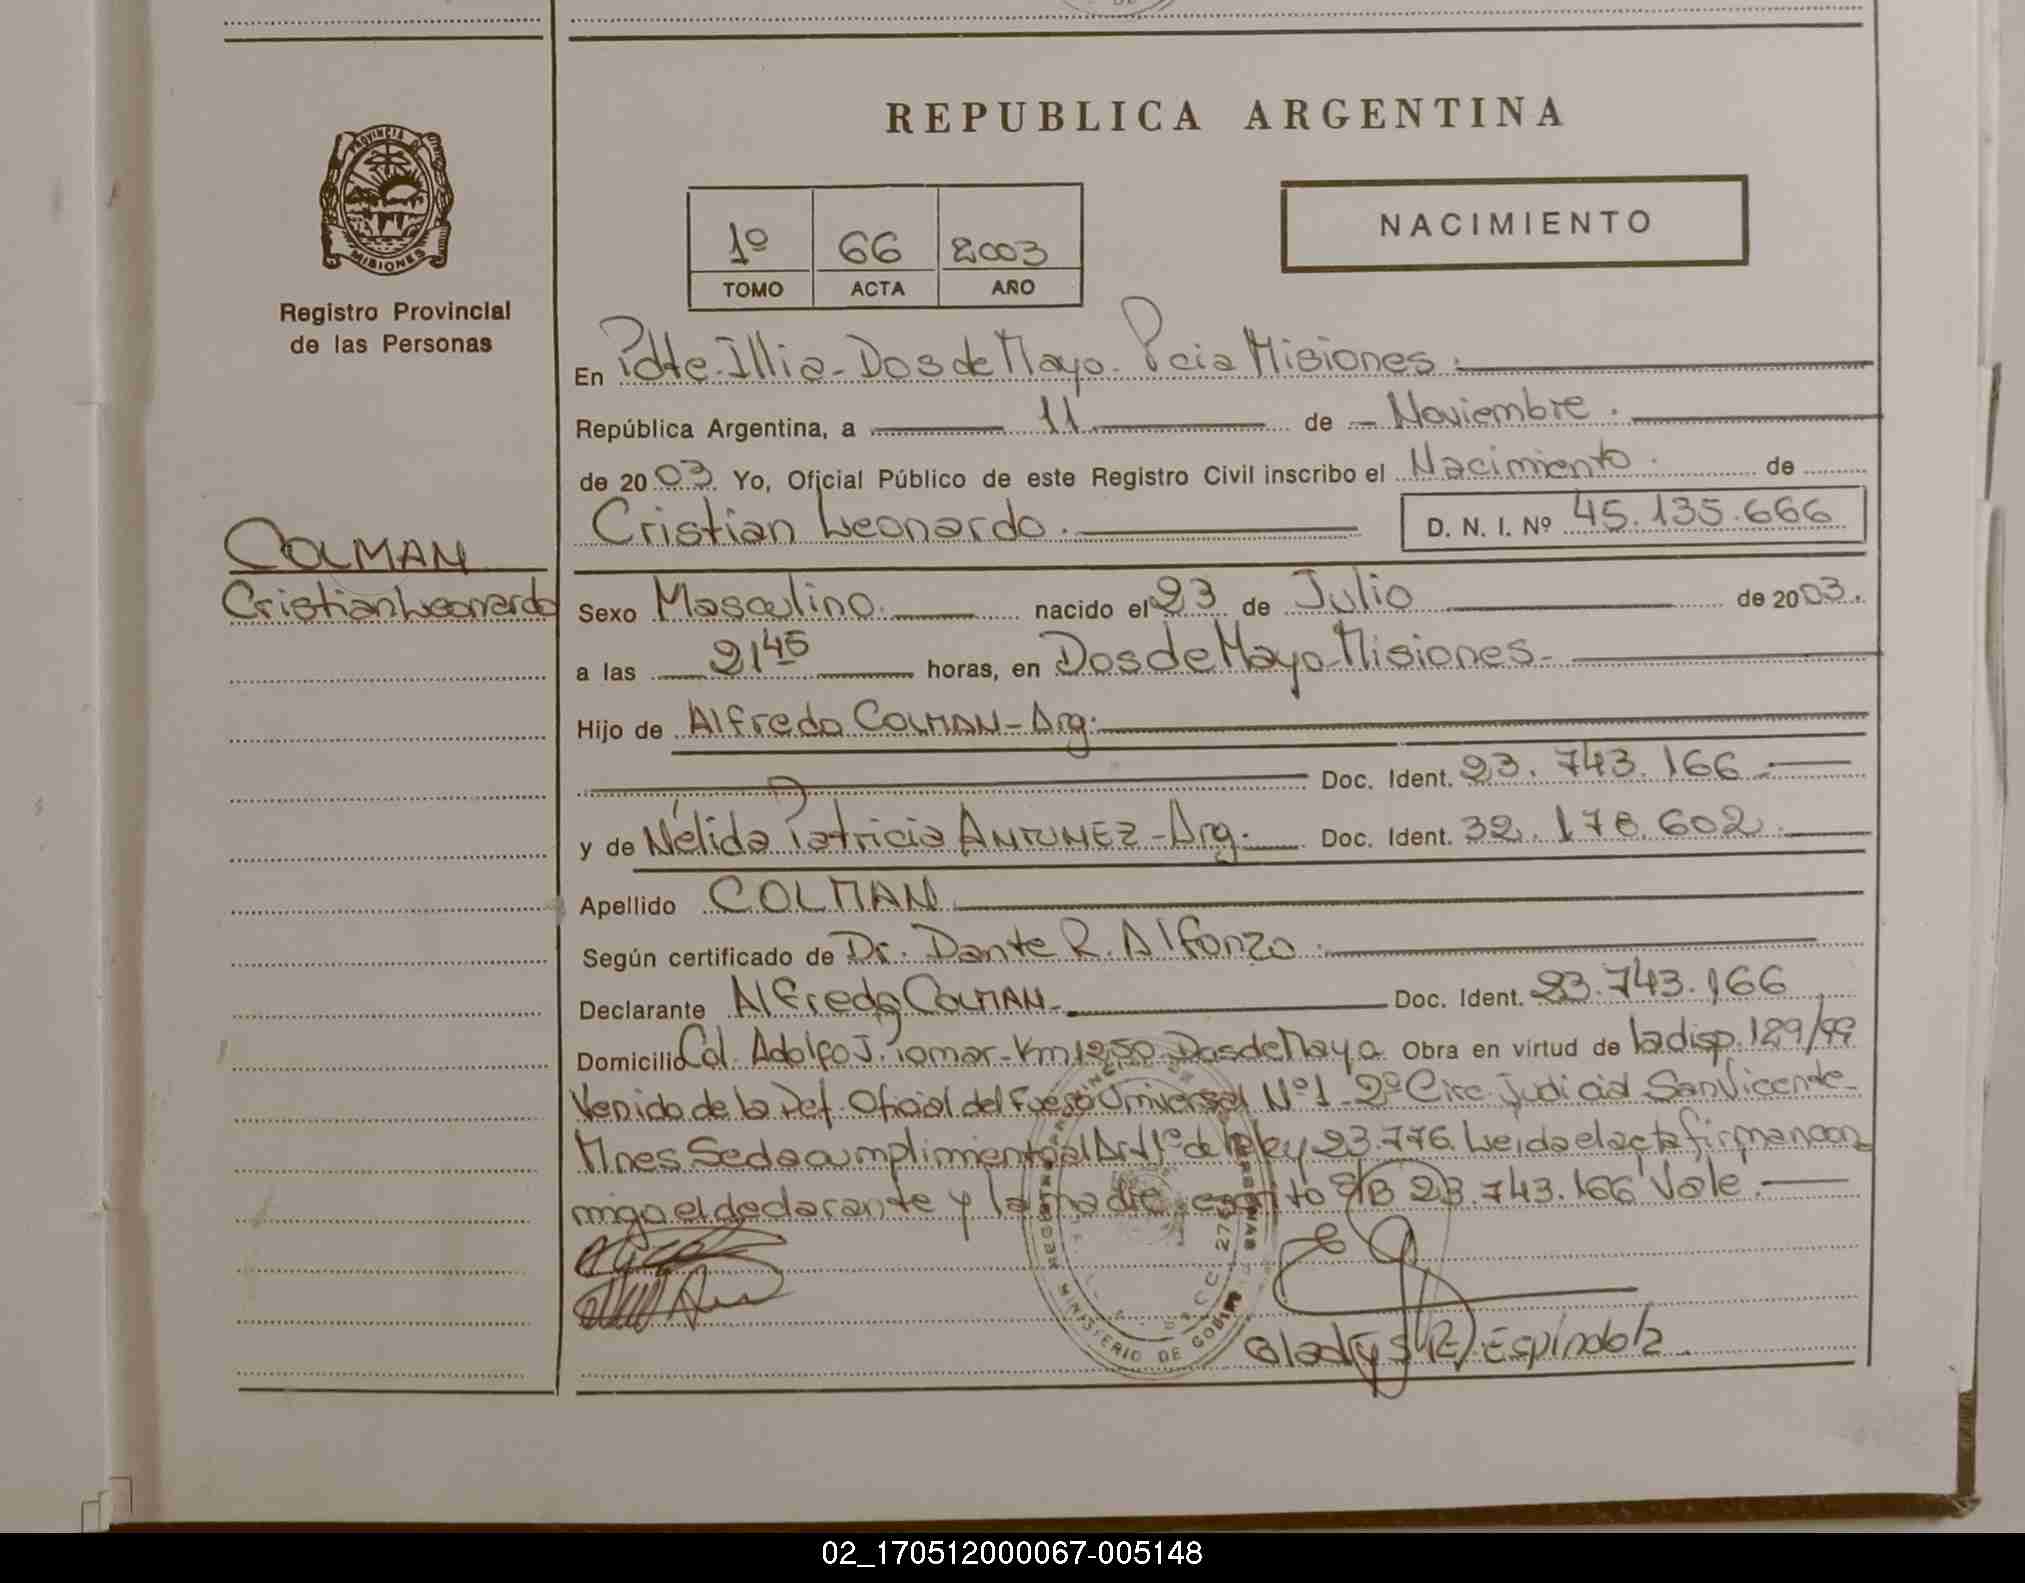 REPUBLICA ARGENTINA
PROVINCIA DE
MISIONES
Registro Provincial
de las Personas
1º 66 2003
TOMO ACTA AÑO
NACIMIENTO
En Pdte. Illia - Dos de Mayo. Pcia Misiones.
República Argentina, a 11 de Noviembre.
de 2003 Yo, Oficial Público de este Registro Civil inscribo el Nacimiento. de
Cristian Leonardo. D. N. I. Nº 45.135.666
COLMAN
Cristian Leonardo
Sexo Masculino. nacido el 23 de Julio de 2003.
a las 21 45 horas, en Dos de Mayo - Misiones -
Hijo de Alfredo COLMAN - Arg.
Doc. Ident. 23.743.166
y de Nélida Patricia ANTUNEZ - Arg. Doc. Ident. 32.178.602
Apellido COLMAN
Según certificado de Dr. Dante R. Alfonzo.
Declarante Alfredo COLMAN. Doc. Ident. 23.743.166
Domicilio Col. Adolfo J. Pomar - Km 1250 Dos de Mayo Obra en virtud de la disp. 129/99
Venida de la Def. Oficial del Fuero Universal Nº 1 - 2º Circ Judicial San Vicente -
Mnes. Se da cumplimiento al Art 1º de la ley 23.776. Leida el acta firman con
migo el declarante y la madre. escrito S/B 23.743.166 Vale.
MINISTERIO DE GOBIERNO
Gladys R. Espíndola
02_170512000067-005148